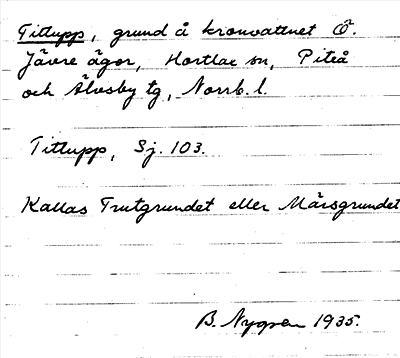 Titlupp, grund å kronvattnet Ö.
Jävre ägor, Hortlax sn, Piteå
och Älvsby tg, Norrb. l.
Titlupp, Sj. 103.
Kallas Trutgrundet eller Märsgrundet
B. Nygren 1935.